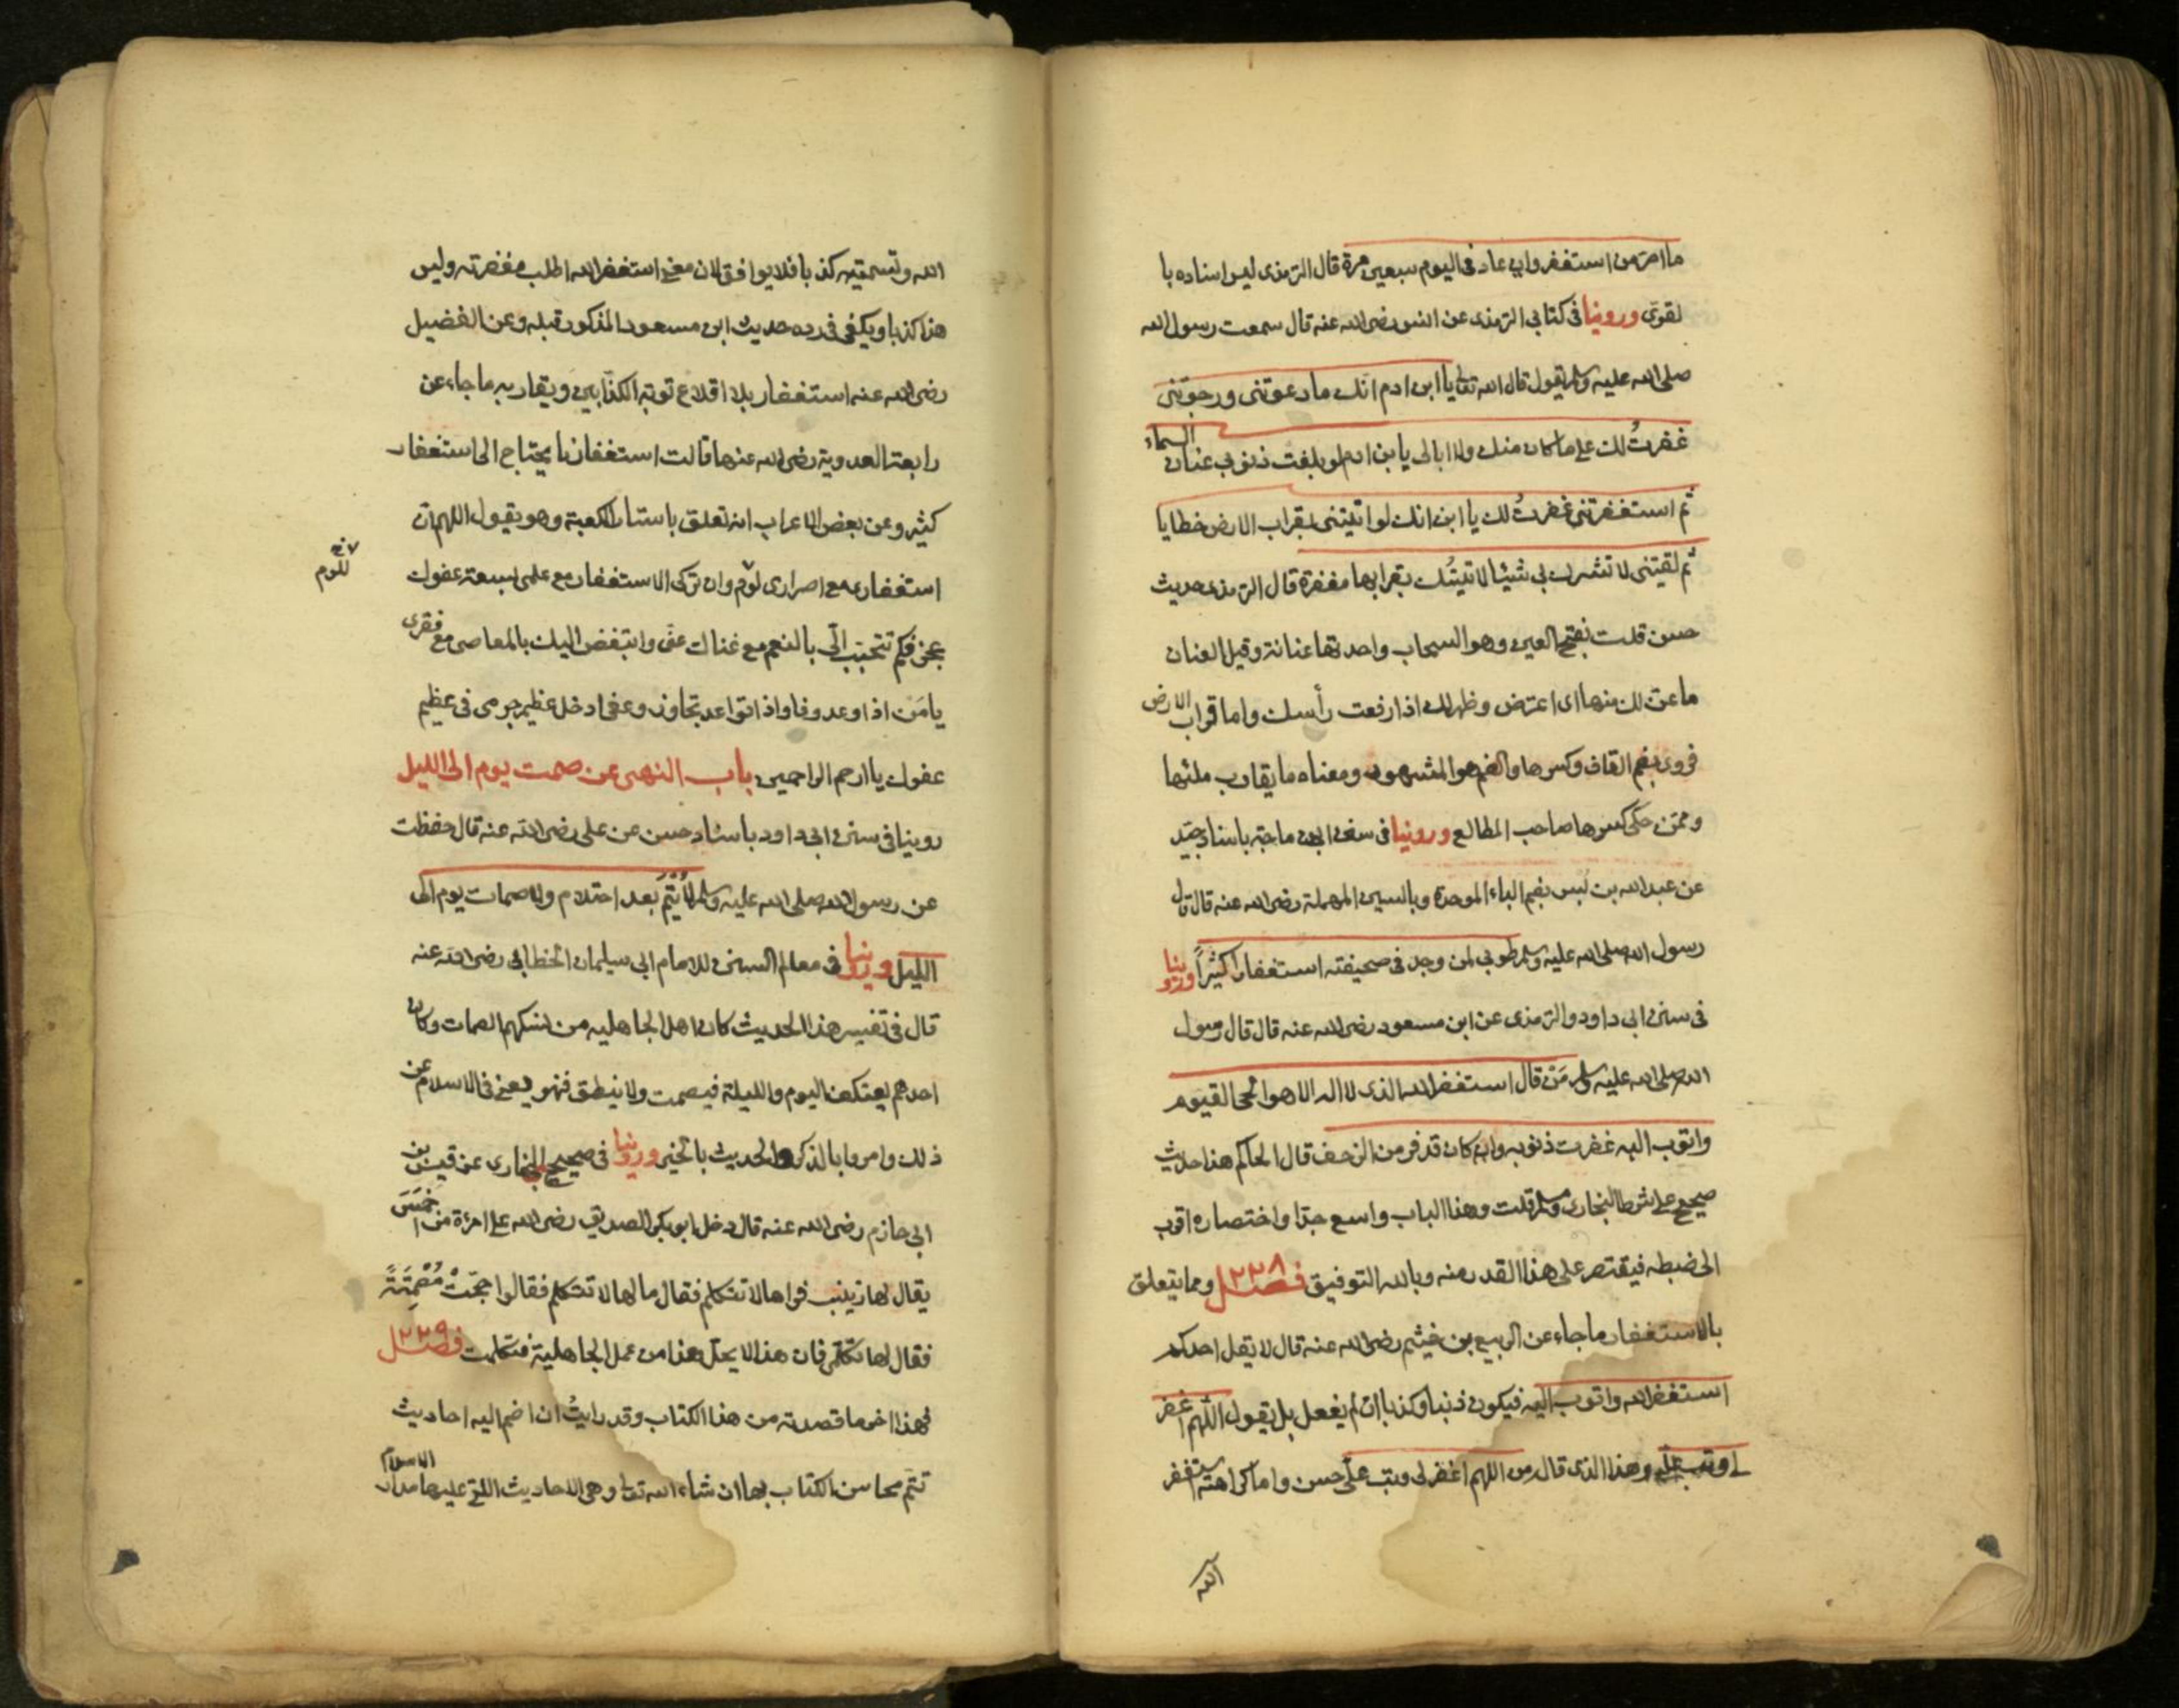 ما اصر من استغفر وان عاد فى اليوم سبعين مرة قال الترمذى ليس اسناده با
لقوى وروينا فى كتابى الترمذى عن انس رضى الله عنه قال سمعت رسول الله
صلى الله عليه وسلم يقول قال الله تعالى يا ابن ادم انك ما دعوتنى ورجوتنى
غفرتُ لك على ما كان منك ولا ابالى يا بن ادم لو بلغت ذنوبك عنان السماء
ثم استغفرتنى غفرتُ لك يا ابن انك لو اتيتنى بقراب الارض خطايا
ثم لقيتنى لا تشرك بى شيئا لاتيتُك بقرابها مغفرة قال الترمذى حديث
حسن قلت بفتح العين وهو السحاب واحدتها عنانة وقيل العنان
ما عنّ لك منها اى اعترض وظهر لك اذا رفعت رأسك واما قراب الارض
فروى بضم القاف وكسرها والضم هو المشهور ومعناه ما يقارب ملئها
وممّن حكى كسرها صاحب المطالع وروينا فى سنن ابن ماجة باسناد جيّد
عن عبد الله بن بُسر بضم الباء الموحدة وبالسين المهملة رضى الله عنه قال قال
رسول الله صلى الله عليه وسلم طوبى لمن وجد فى صحيفته استغفارا كثيراً وروينا
فى سنن ابى داود والترمذى عن ابن مسعود رضى الله عنه قال قال رسول
الله صلى الله عليه وسلم مَن قال استغفر الله الذى لا اله الا هو الحى القيوم
واتوب اليه غفرت ذنوبه وان كان قد فر من الزحف قال الحاكم هذا حديث
صحيح على شرط البخارى ومسلم قلت وهذا الباب واسع جدا واختصاره اقرب
الى ضبطه فيقتصر على هذا القدر منه وبالله التوفيق فصل ٢٣٨ ومما يتعلق
بالاستغفار ما جاء عن الربيع بن خيثم رضى الله عنه قال لا يقل احدكم
استغفر الله واتوب اليه فيكون ذنبا وكذبا ان لم يفعل بل يقول اللهم اغفر
لى وتب علىّ وهذا الذى قال من اللهم اغفر لى وتب علىّ حسن واما كراهته استغفر
الله
الله وتسميته كذبا فلا يوافق لان معنى استغفر الله اطلب مغفرته وليس
هذا كذبا ويكفى فى رده حديث ابن مسعود المذكور قبله وعن الفضيل
رضى الله عنه استغفار بلا اقلاع توبة الكذّابين ويقاربه ما جاء عن
رابعة العدوية رضى الله عنها قالت استغفارنا يحتاج الى استغفار
كثير وعن بعض الاعراب انه تعلق باستار الكعبة وهو يقول اللهم ان
استغفارى مع اصرارى لوٌم وان تركى الاستغفار مع علمى بسعة عفوك
للوم
عجز فكم تتحبّب الىّ بالنعم مع غناك عنّى واتبغّض اليك بالمعاصى مع فقرى
يا مَن اذا وعد وفا واذا تواعد تجاوز وعفى ادخل عظيم جرمى فى عظيم
عفوك يا ارحم الراحمين باب النهى عن صمت يوم الى الليل
روينا فى سنن ابى داود باسناد حسن عن على رضى الله عنه قال حفظت
عن رسول الله صلى الله عليه وسلم لا يُتْمَ بعد احتلام ولا صمات يوم الى
الليل وروينا فى معالم السنن للامام ابى سليمان الخطابى رضى الله عنه
قال فى تفسير هذا الحديث كان اهل الجاهليه من نسكهم الصمات وكان
احدهم يعتكف اليوم والليلة فيصمت ولا ينطق فنهو يعنى فى الاسلام عن
ذلك وامروا بالذكر والحديث بالخير وروينا فى صحيح البخارى عن قيس بن
ابى حازم رضى الله عنه قال دخل ابو بكر الصديق رضى الله على امرءة من احْمَسَ
يقال لها زينب فراها لا تتكلم فقال ما لها لا تتكلم فقالوا حجّتْ مُصْمِتَةً
فقال لها تكلّمى فان هذا لا يحلّ هذا من عمل الجاهلية فتكلمت فصل ٢٣٩
فهذا اخر ما قصدته من هذا الكتاب وقد رايتُ ان اضم اليه احاديث
تتم محاسن الكتاب بها ان شاء الله تعالى وهى الاحاديث التى عليها مدار الاسلام